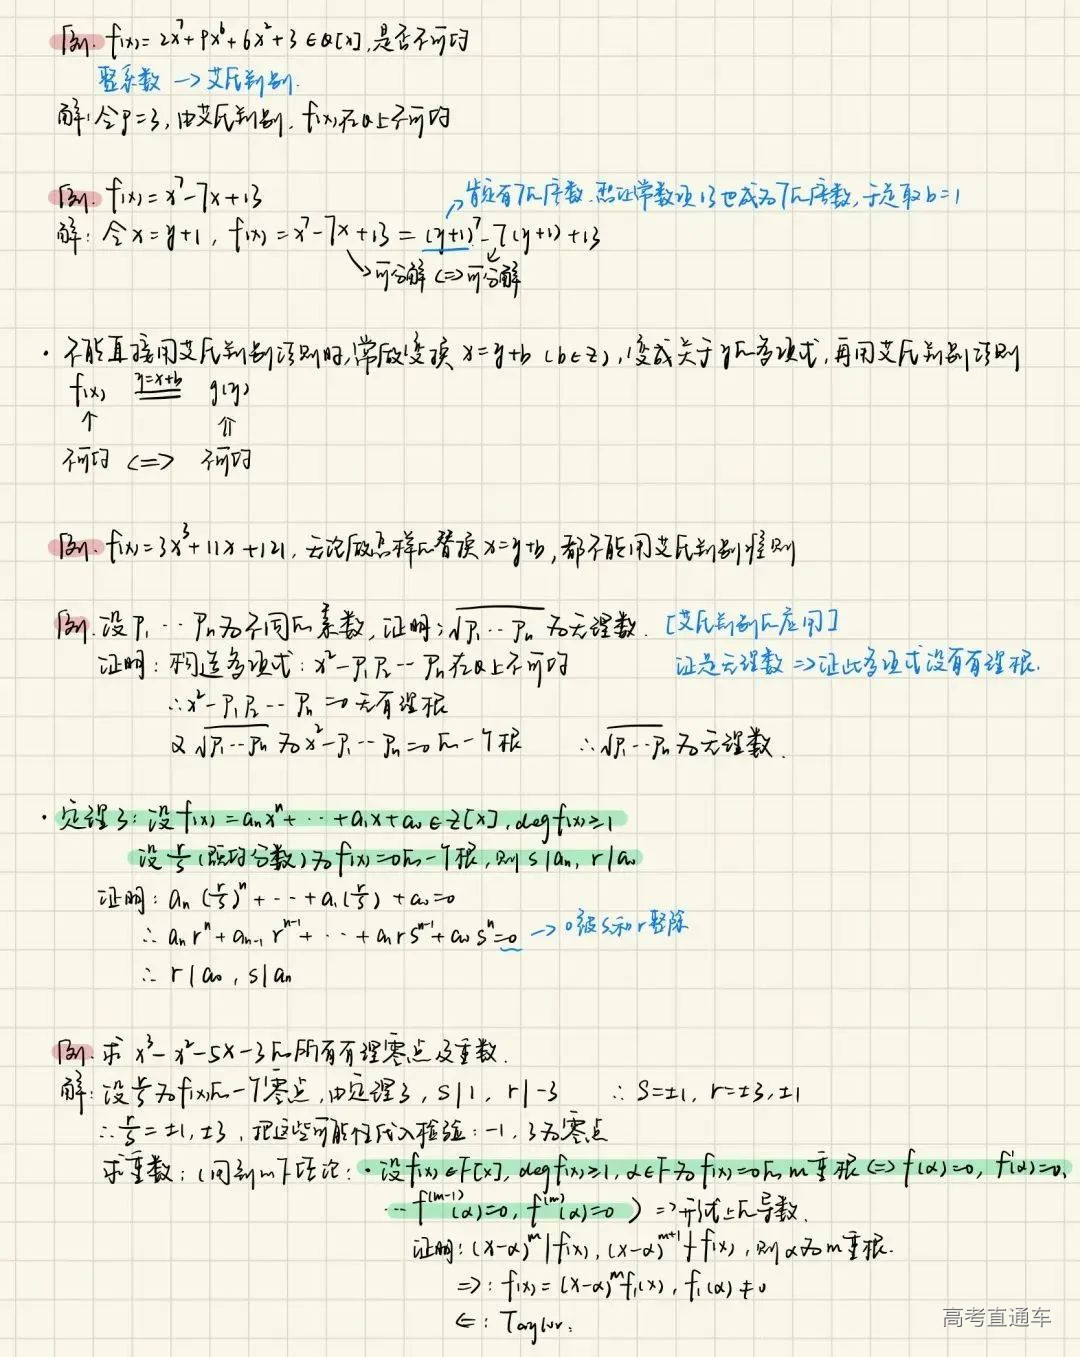 例. f(x) = 2x⁷+9x⁶+6x²+3 ∈ Q[x], 是否不可约
整系数 → 艾氏判别.
解: 令p=3, 由艾氏判别, f(x)在Q上不可约
例. f(x) = x⁷-7x+13
肯定有7的倍数, 想让常数项13也成为7的倍数, 于是取b=1
解: 令x=y+1, f(x) = x⁷-7x+13 = (y+1)⁷-7(y+1)+13
可分解 <=> 可分解
· 不能直接用艾氏判别法则时, 常做变换 x=y+b (b∈Z), 变成关于y的多项式, 再用艾氏判别法则
f(x) y=x+b g(y)
↑ ⇑
不可约 <=> 不可约
例. f(x)=3x³+11x+121, 无论做怎样的替换x=y+b, 都不能用艾氏判别准则
例. 设P₁ ⋯ Pₙ为不同的素数, 证明: √P₁⋯Pₙ 为无理数. [艾氏判别的应用]
证明: 构造多项式: x²-P₁P₂⋯Pₙ在Q上不可约
证是无理数 => 证此多项式没有有理根.
∴x²-P₁P₂⋯Pₙ=0无有理根
又√P₁⋯Pₙ 为x²-P₁⋯Pₙ=0的一个根 ∴√P₁⋯Pₙ为无理数.
· 定理3: 设f(x) = aₙxⁿ+⋯+a₁x+a₀∈Z[x], degf(x)≥1
设r/s (既约分数)为f(x)=0的一个根, 则s|aₙ, r|a₀
证明: aₙ(r/s)ⁿ+⋯+a₁(r/s)+a₀=0
∴ aₙrⁿ+aₙ₋₁rⁿ⁻¹+⋯+a₁rsⁿ⁻¹+a₀sⁿ=0 → 0被s和r整除
∴ r|a₀, s|aₙ
例. 求 x³-x²-5x-3的所有有理零点及重数.
解: 设r/s为f(x)的一个零点, 由定理3, s|1, r|-3 ∴ s=±1, r=±3,±1
∴r/s=±1,±3, 把这些可能性代入检验: -1, 3为零点
求重数: (用到如下结论: ·设f(x)∈F[x], degf(x)≥1, α∈F为f(x)=0的m重根<=>f(α)=0, f'(α)=0,
⋯f⁽ᵐ⁻¹⁾(α)=0, f⁽ᵐ⁾(α)=0 ) => 形式上的导数.
证明: (x-α)ᵐ|f(x), (x-α)ᵐ⁺¹∤f(x), 则α为m重根.
=>: f(x)=(x-α)ᵐf₁(x), f₁(α)≠0
⇐: Taylor.
高考直通车